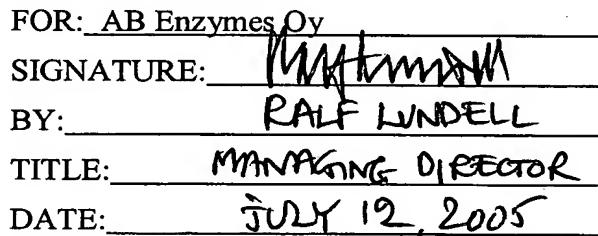 FOR: AB Enzymes Oy
SIGNATURE:
BY: RALF LUNDELL
TITLE: MANAGING DIRECTOR
DATE: JULY 12, 2005